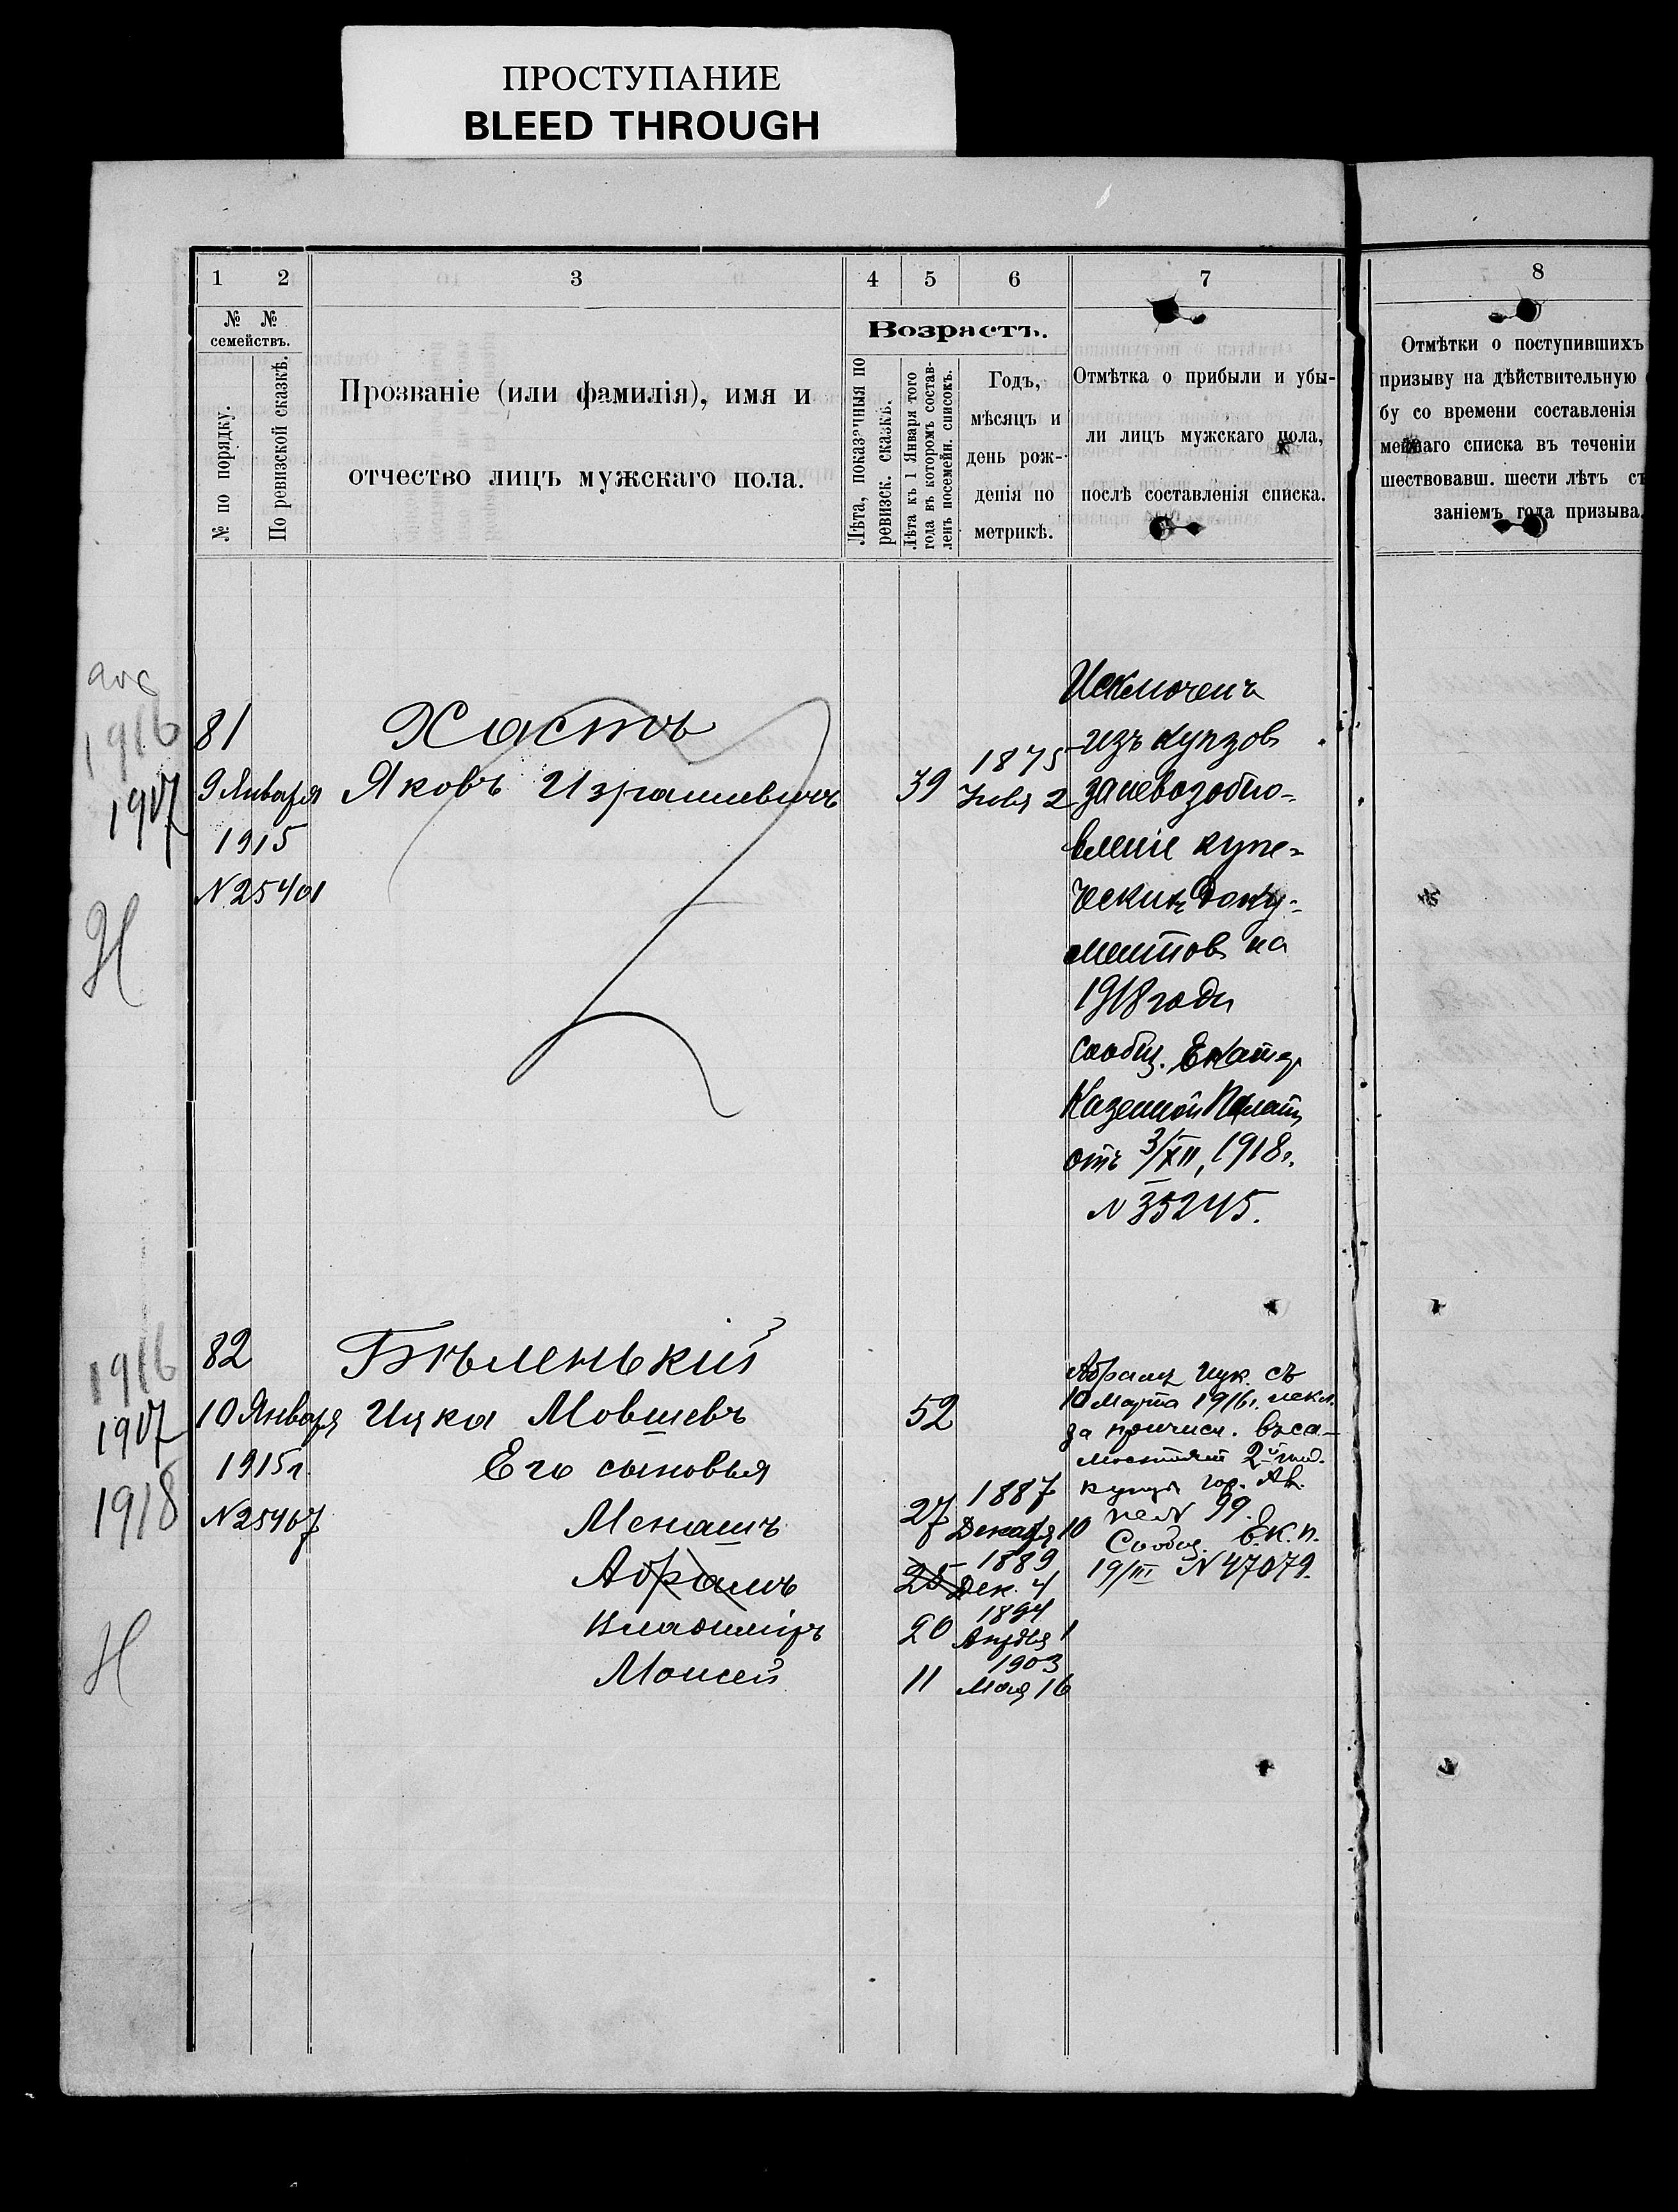 ПРОСТУПАНИЕ
BLEED THROUGH
1 2 3 4 5 6 7 8
№ № семействъ.
№ по порядку.
По ревизской сказкѣ.
Прозваніе (или фамилія), имя и
отчество лицъ мужскаго пола.
Возрастъ.
Лѣта, показанныя по
ревизск. сказкѣ.
Лѣта къ 1 Января того
года въ которомъ состав-
ленъ посемейн. списокъ.
Годъ,
мѣсяцъ и
день рож-
денія по
метрикѣ.
Отмѣтка о прибыли и убы-
ли лицъ мужскаго пола,
послѣ составленія списка.
Отмѣтки о поступившихъ
призыву на дѣйствительную
бу со времени составленія
мейнаго списка въ теченіи
шествовавш. шести лѣтъ съ
заніемъ года призыва.
1916
1917
Н
81
9 Января
1915
N 25401
Хастъ
Яковъ Израилевичъ
39
1875
2
Исключенъ
изъ купцов
за невозобно-
вленіе купе-
ческихъ доку-
ментов на
1918 годъ
сообщ. Екатер
Казенной Палаты
отъ 3/XII, 1918г.
N 35245.
1916
1917
1918
Н
82
10 Января
1915г.
N 25467
Бѣленькій
Ицка Мовшевъ
52
Его сыновья
Менашъ
27
1887
Декабря 10
Абрамъ
25
1889
Дек. 4
Владиміръ
20
1894
Апрѣля 1
Моисей
11
1903
Мая 16
Абрамъ Ицк. съ
10 Марта 1916г. искл.
за причисл. въ са-
мостоят 2й гильд.
купцы гор.
N 99.
Сообщ. Е.К.П.
19/III N 47079.